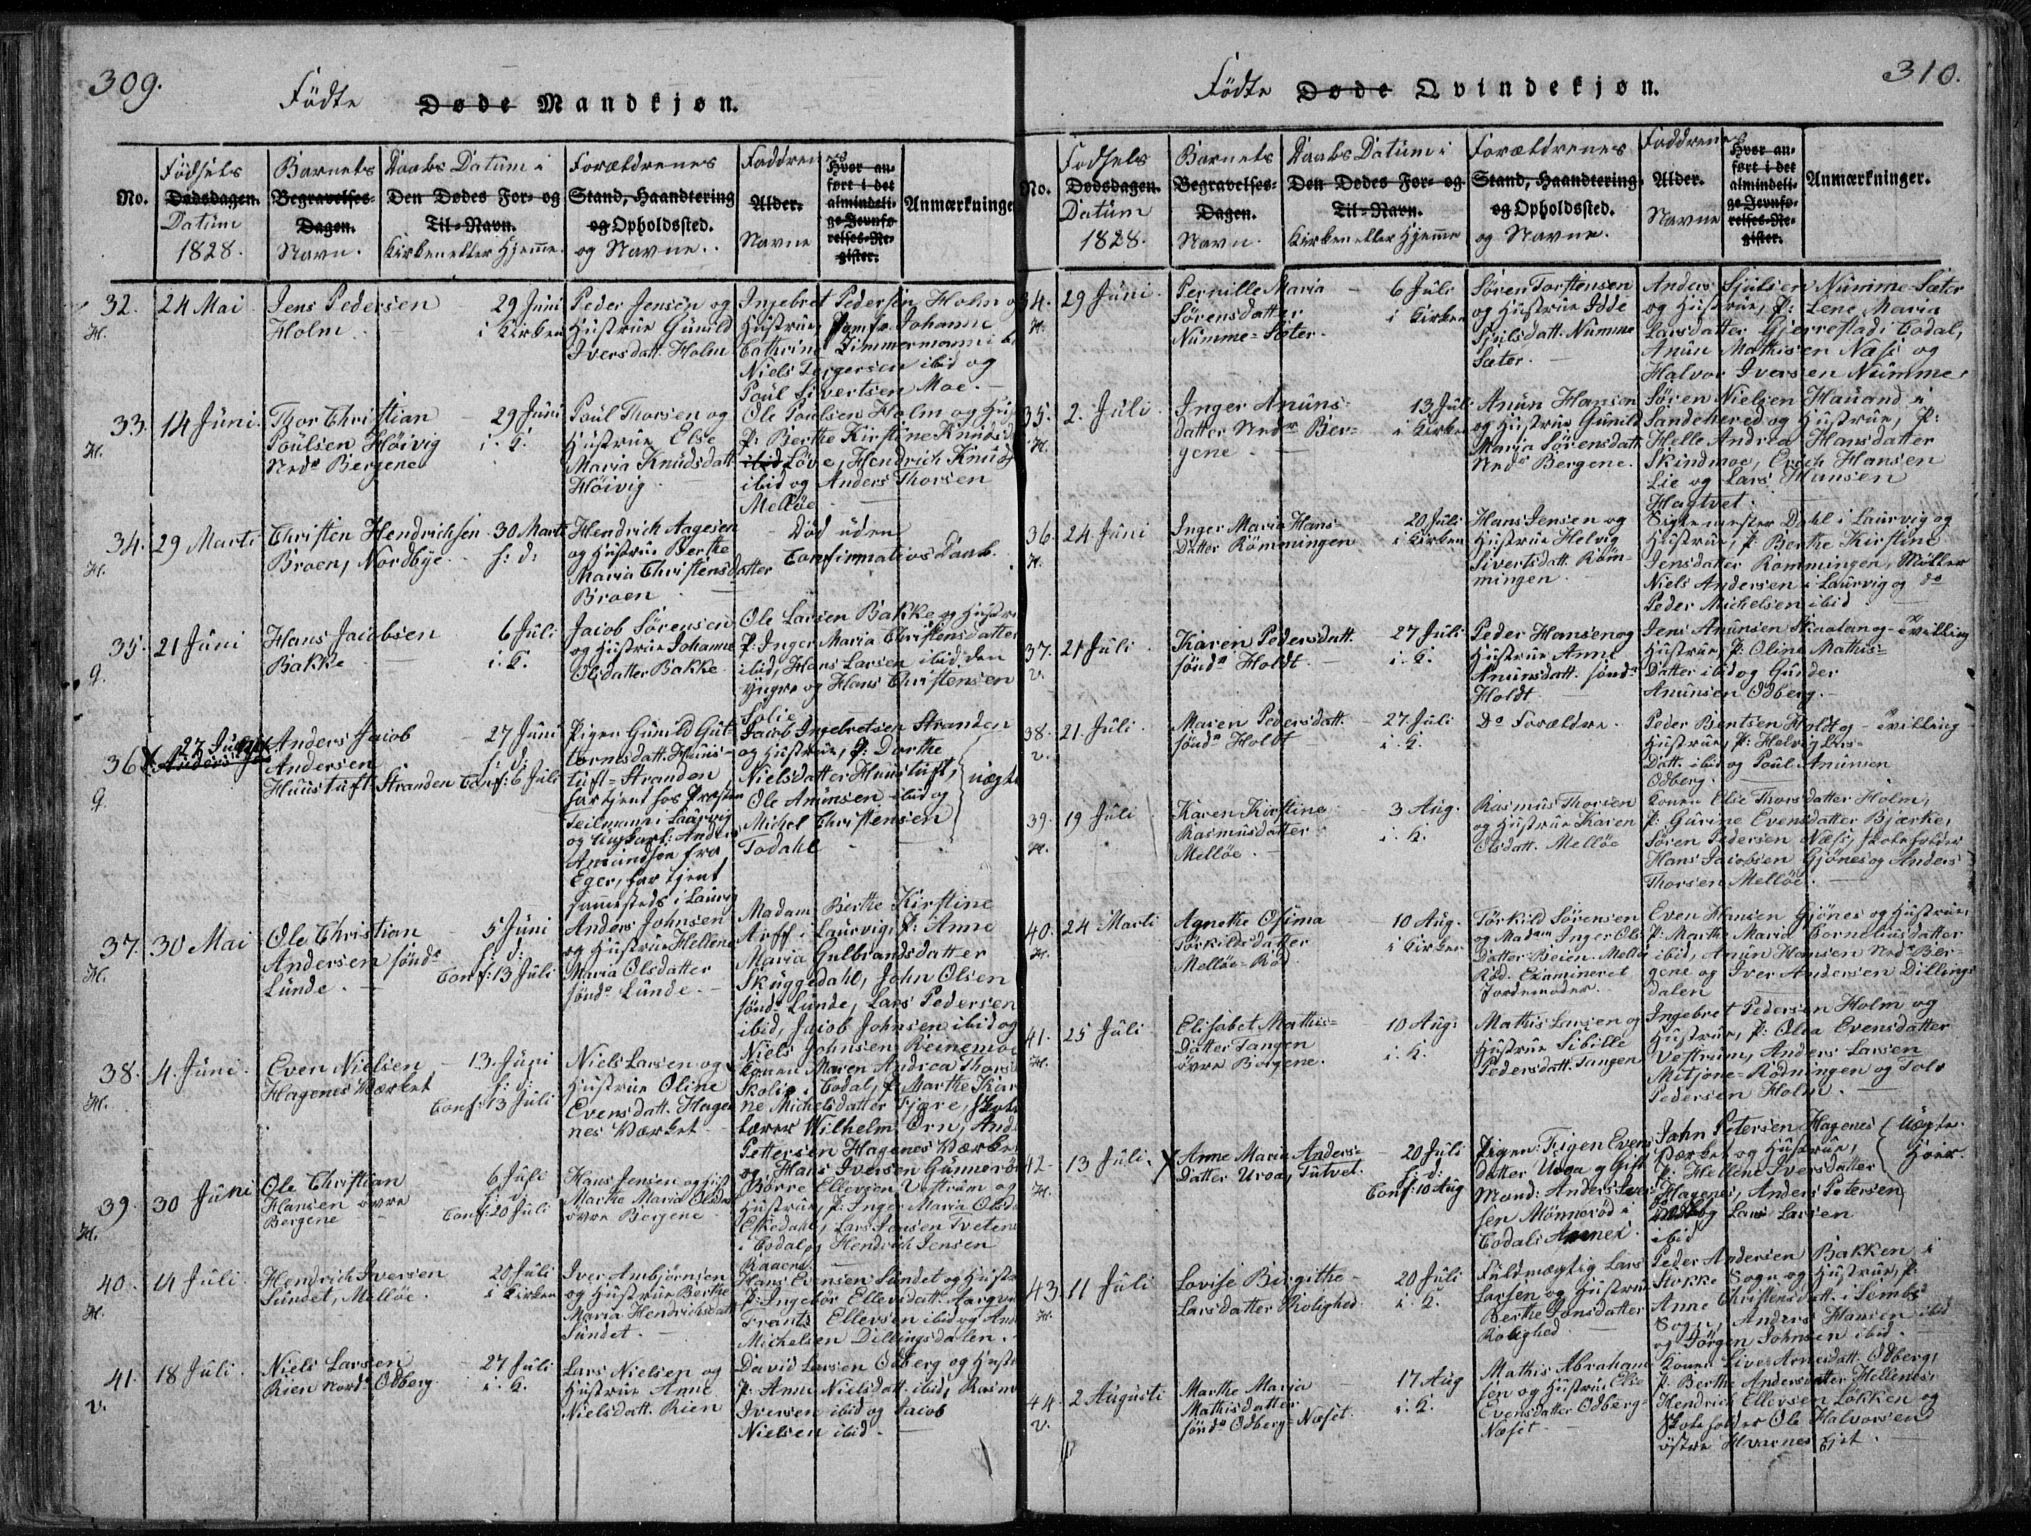 309.
Födte Døde Mandkjøn.
No.
Födsels
Dødsdagen.
Datum
1828.
Barnets
Begravelses-
Dagen.
Navn.
Daabs Datum i
Den Dødes For- og
Til-Navn.
Kirken eller Hjemme
Forældrenes
Stand, Haandtering
og Opholdssted.
og Navne.
Faddrenes
Alder.
Navne
Hvor an-
ført i det
almindeli-
ge Jevnfø-
relses-Re-
gister.
Anmærkninge
32.
H.
24 Mai
Jens Pedersen
Holm
29 Juni
i Kirken
Peder Jensen og
Hustrue Gunild
Iversdatt. Holm
Ingebret Pedersen Holm
Hustrue, Jomfr. Johanne
Cathrine Zimmermann i
Niels Torgersen ibid og
Poul Sivertsen Moe.
33.
H.
14 Juni
Thor Christian
Poulsen Höivig
Nedr Bergene
29 Juni
i. K.
Poul Thorsen og
Hustrue Else
Maria Knudsdatt.
Höivig
Ole Poulsen Holm og
P: Berthe Kirstine Knuds
ibid Löve, Hendrich Knuds
ibid og Anders Thorsen
Mellöe
34.
H.
29 Marti
Christen Hendrichsen
Broen, Nordbye
30 Marti
h: d:
Hendrich Aagesen
og Hustrue Berthe
Maria Christensdatter
Broen
Död uden
Confirmations Daab.
35.
g.
21 Juni
Hans Jacobsen
Bakke
6 Juli
i. K.
Jacob Sörensen
og Hustrue Johanne
Olsdatter Bakke
Ole Larsen Bakke og Hustrue
P: Inger Maria Christensdatter
ibid, Hans Larsen ibid. den
yngre og Hans Christensen
Solie
36
g.
27 Juni
Anders Jacob
Andersen
Huustuft Stranden
27 Juni
h: d:
Conf: 6 Juli
Pigen Gunild Gut-
tormsdatt. Huus-
tuft-Stranden
har tjent hos Præsten
Teilmann i Laurvig
og Anders
Amundsen fra
Eger, har tjent
sammesteds i Laurvig
Jacob Ingebretsen Stranden
og Hustrue, P: Dorthe
Nielsdatter Huustuft,
Ole Anunsen ibid og
Michel Christensen
Todahl
uægte
37.
H.
30 Mai
Ole Christian
Andersen söndr
Lunde.
5 Juni
h: d:
Conf: 13 Juli
Anders Johnsen
og Hustrue Hellene
Maria Olsdatter
söndr Lunde.
Madam Berthe Kirstine
Arff i Laurvig, P: Anne
Maria Gulbrandsdatter
Skuggedahl, John Olsen
söndr Lunde, Lars Pedersen
ibid, Jacob Johnsen ibid og
Niels Johnsen Reinemoe
38.
H.
4. Juni.
Even Nielsen
Hagenes Værket
13. Juni
h: d:
Conf: 13 Juli
Niels Larsen og
Hustrue Oline
Evensdatt. Hage
nes Værket
Konen Maren Andrea Thorsd
Skolie i Kodal, P: Marthe Kir
ne Michelsdatter Fjære,
Wilhelm Örn, And
Pettersen Hagenes Værket
og Hans Iversen Gunnerö
39.
H.
30 Juni
Ole Christian
Hansen övre
Bergene
6 Juli
h: d:
Conf: 20 Juli
Hans Jensen og Hustr
Marthe Maria Olsdatt
övre Bergene
Börre Ellevsen Vestrum og
Hustrue, P: Inger Maria Olsd
Eskedahl, Lars Jensen Tveten
i Kodal og Hendrich Jensen
Raaene
40.
H.
14 Juli
Hendrich Iversen
Sundet, Mellöe.
20 Juli
i Kirken
Iver Ambjörnsen
og Hustrue Berthe
Maria Hendrichsdatt
Sundet.
Hans Evensen Sundet og Hustr
P: Ingebör Ellevsdatt.
Frants Ellevsen ibid og And
Michelsen Dillingsdalen.
41.
v.
18 Juli.
Niels Larsen
Rien nordr Odberg
27 Juli
i. K.
Lars Nielsen og
Hustrue Anne
Nielsdatt. Rien
David Larsen Odberg og Hust
P: Anne Nielsdatt. ibid, Rasm
Iversen ibid og Jacob
Nielsen ibid.
310.
Födte Døde Qvindekjøn.
No.
Födsels
Dødsdagen.
Datum
1828.
Barnets
Begravelses-
Dagen.
Navn.
Daabs Datum i
Den Dødes For- og
Til-Navn.
Kirken eller Hjemme
Forældrenes
Stand, Haandtering
og Opholdssted.
og Navne.
Faddrenes
Alder.
Navne
Hvor an-
ført i det
almindeli-
ge Jevnfø-
relses-Re-
gister.
Anmærkninger.
34.
H.
29 Juni
Pernille Maria
Sörensdatter
Numme-Sæter.
6 Juli
i Kirken
Sören Torstensen
og Hustrue Idde
Sjulsdatt. Numme
Sæter.
Anders Sjulsen Numme-Sæter
og Hustrue, P: Lene Maria
Larsdatter Gjerrestad i Kodal,
Anun Mathisen Næss og
Halvor Iversen Numme.
35.
H.
2. Juli
Inger Anuns-
datter Nedr Ber-
gene
13 Juli
i Kirken
Anun Hansen
og Hustrue Gunild
Maria Sörensdatt
Nedr Bergene.
Sören Nielsen Hauand i
Sandehered og Hustrue, P:
Helle Andrea Hansdatter
Skindmoe, Erich Hansen
Lie og Lars Hansen
Hagtvet.
36.
H.
24 Juni
Inger Maria Hans-
datter Römmingen
20 Juli
i Kirken
Hans Jensen og
Hustrue Helvig
Sivertsdatt. Röm-
mingen
Sigtemester Dahl i Laurvig og
Hustrue, P: Berthe Kirstine
Jensdatter Rommingen, Möller
Niels Andersen i Laurvig og do
Peder Michelsen ibid
37.
v.
21 Juli
Karen Pedersdatt.
söndr Holdt.
27 Juli
i. K.
Peder Hansen og
Hustrue Anne
Anunsdatt. söndr
Holdt
Jens Anunsen Skaaten og
Hustrue, P: Oline Mathis-
datter ibid og Gunder
Anunsen Odberg.
Tvilling
38.
v.
21 Juli.
Maren Pedersdatt.
söndr Holdt
27 Juli
i. K.
Do Forældre.
Peder Bentsen Holdt og
Hustrue, P: Helvig Lars-
datt. ibid og Poul Anunsen
Odberg.
Tvilling
39.
H.
19 Juli
Karen Kirstine
Rasmusdatter
Mellöe.
3 Aug.
i. K.
Rasmus Thorsen
og Hustrue Karen
Olsdatt. Mellöe
Konen Else Thorsdatter Holm,
P: Gurine Evensdatter Bjærke,
Sören Pedersen Næss, Skoleholder
Hans Jacobsen Gjönes og Anders
Thorsen Mellöe.
40.
H.
24 Marti
Agnethe Osima
Torkildsdatter
Mellöe-Röd
10 Aug.
i Kirken
Törkild Sörensen
og Madam Inger Ols-
datter Beien. Mellöe
Röd. Examineret
Jordemoder.
Even Hansen Gjönes og Hustrue,
P: Marthe Maria Corneliusdatter
ibid, Anun Hansen Nedr Ber-
gene og Iver Andersen Dillings
dalen
41.
H.
25 Juli
Elisabet Mathis-
datter Tangen
övre Bergene.
10 Aug.
i. K.
Mathis Larsen og
Hustrue Sibille
Pedersdatt. Tangen
Ingebret Pedersen Holm og
Hustrue, P: Olea Evensdatter
Vestrum, Anders Larsen
Mitjone-Rödningen og Tolv
Pedersen Holm.
42.
H.
13 Juli.
Anne Maria Anders-
datter Uroa, Tutvet.
20 Juli
h: d:
Conf: 10 Aug
Pigen: Eigen Evens
datter Uroa og Gift
Mand: Anders Iver
sen Mönneröd i
Kodals Annex
John Petersen Hagenes
Værket og Hustrue,
P: Hellene Iversdatter
Hagenes, Anders Petersen
ibid og Lars Larsen
ibid
Uægte.
Hoer.
43
H.
11 Juli
Lovise Birgithe
Larsdatter Rolighed
20 Juli
i. K.
Fuldmægtig Lars
Larsen og Hustrue
Berthe Jonsdatter
Rolighed
Peder Andersen Bakken i
Stokke Sogn og Hustrue, P:
Anne Christensdatt. i Sembs
Sogn, Anders Hansen ibid
og Jörgen Johnsen ibid.
44
v.
2 Augusti
Marthe Maria
Mathisdatter
söndr Odberg-Næset
17 Aug
i. K.
Mathis Abraham
sen og Hustrue Else
Evensdatter Odberg-
Næset
Konen Live Arnesdatt. Odberg,
P: Berthe Andersdatter Hellenes,
Hendrich Ellevsen Lökken og
Skoleholder Ole Halvorsen
östre Hvarnes Eiet.